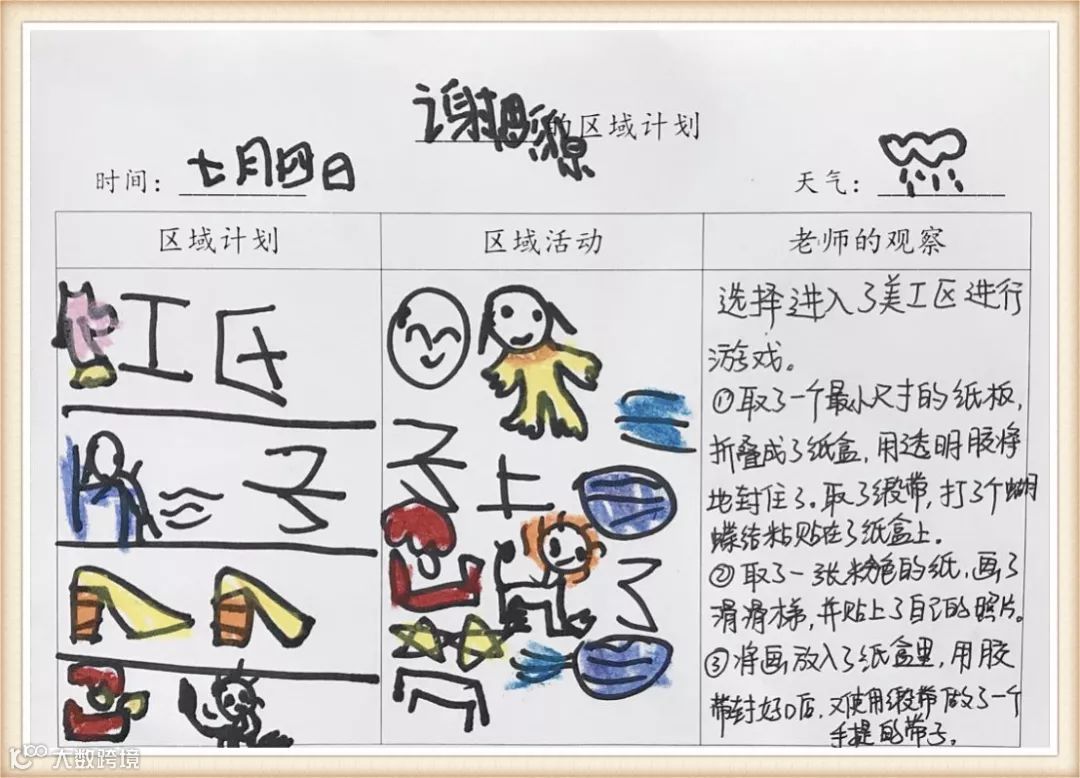 谢的区域计划
时间：七月四日
天气：
区域计划
区域活动
老师的观察
工
土
选择进入了美工区进行
游戏。
①取了一个最小尺寸的纸板，
折叠成了纸盒，用透明胶将
地封住了．取了缎带，打了个蝴
蝶结粘贴在了纸盒上。
②取了一张粉色的纸，画了
滑滑梯，并贴上了自己的照片。
③将画放入了纸盒里，用胶
带封好口后，又使用缎带做了一个
手提的带子。
大数跨境